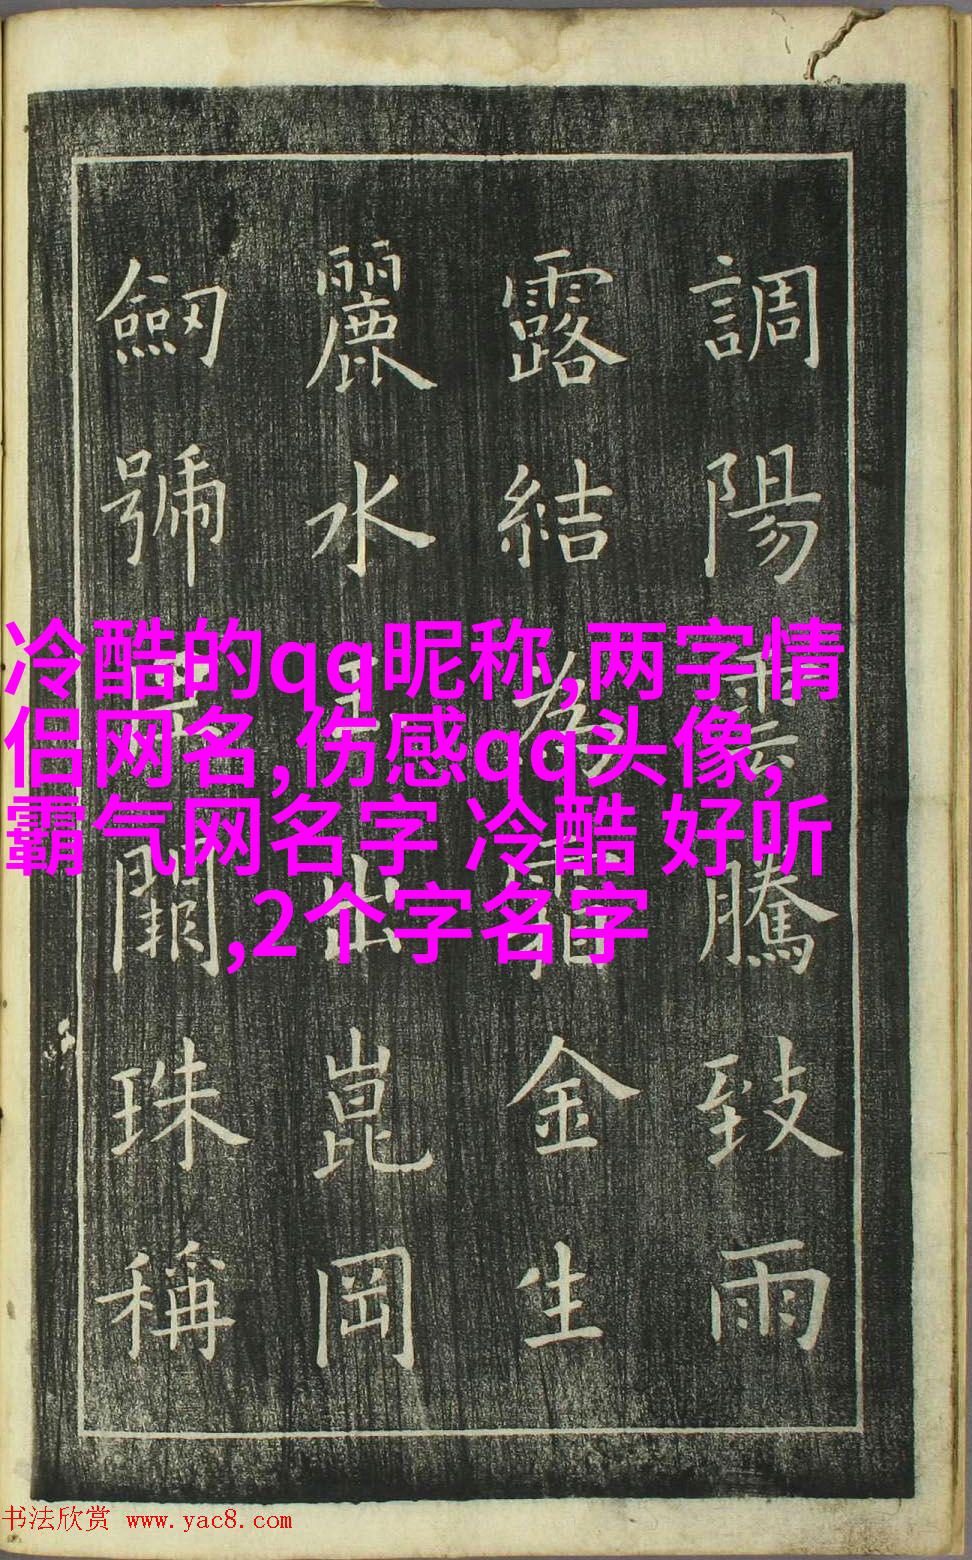 調陽雲騰致雨
露結為霜金生
麗水玉出崑岡
劒號巨闕珠稱
冷酷的qq昵称,两字情
侣网名,伤感qq头像,
霸气网名字 冷酷 好听
,2个字名字
书法欣赏 www.yac8.com